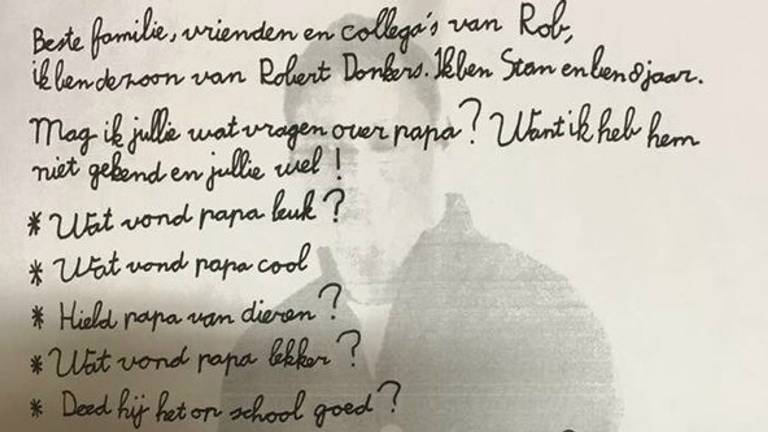 Beste familie, vrienden en collega's van Rob,
ik ben de zoon van Robert Donkers. Ik ben Stan en ben 8 jaar.
Mag ik jullie wat vragen over papa? Want ik heb hem
niet gekend en jullie wel!
* Wat vond papa leuk?
* Wat vond papa cool
* Hield papa van dieren?
* Wat vond papa lekker?
* Deed hij het op school goed?